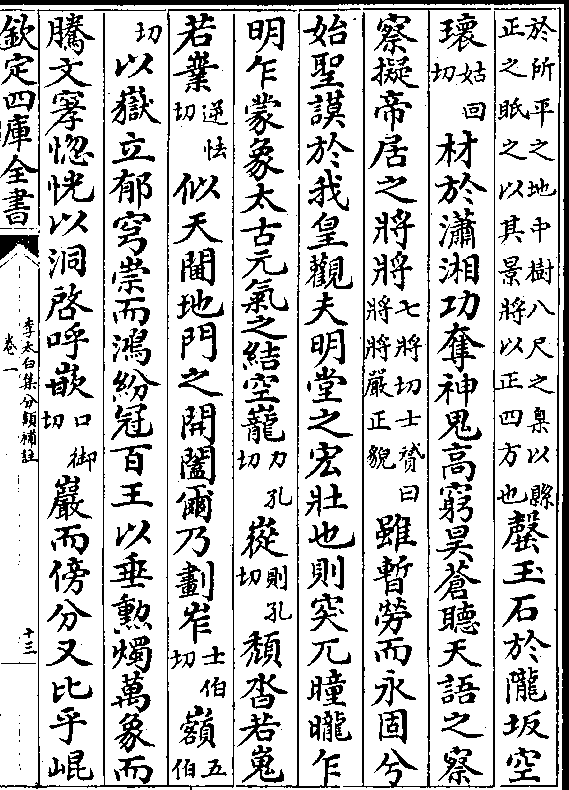 於所平之地中樹八尺之臬以縣
正之眡之以其景將以正四方也
罄玉石於隴坂空
瓌姑回切材於瀟湘功奪神鬼高窮昊蒼聽天語之察
察擬帝居之將將七將切士贇曰將將嚴正貌雖暫勞而永固兮
始聖謨於我皇觀夫明堂之宏壯也則突兀曈曨乍
明乍蒙象太古元氣之結空巃力孔切嵸則孔切頹沓若嵬
若嶪逆怯切似天閫地門之開闔爾乃劃岝士伯切嶺五伯
切以嶽立郁穹崇而鴻紛冠百王以垂勲燭萬象而
騰文寥惚恍以洞啓呼嵌口御切巖而傍分又比乎崐
欽定四庫全書
李太白集分類補註
卷一
十三